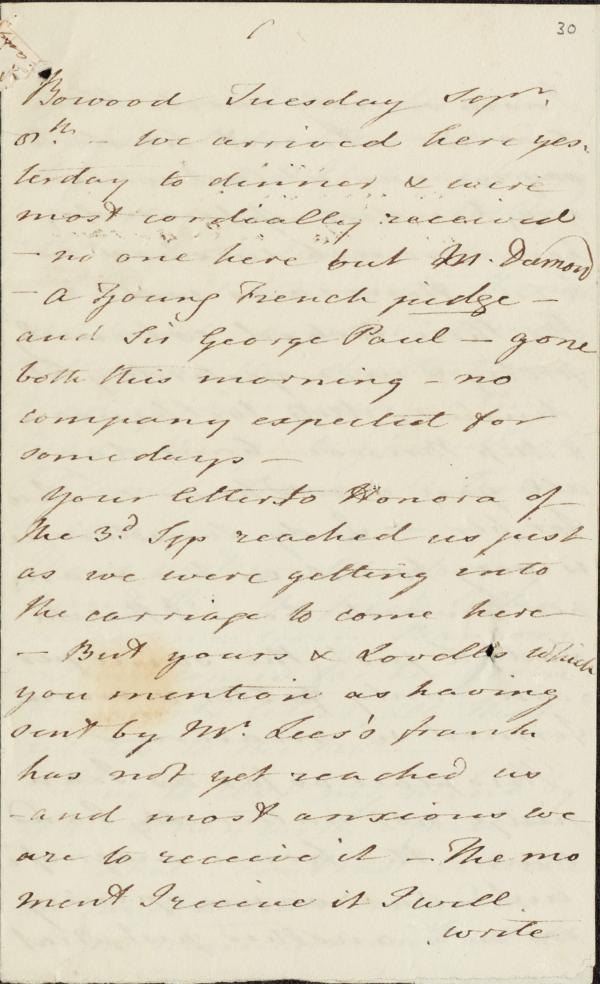 30
Bowood Tuesday Sepr.
8th. – We arrived here yes-
terday to dinner & were
most cordially received
– no one here but M. Dumont
– a Young French judge –
and Sir George Paul – gone
both this morning – no
company expected for
some days –
Your letter to Honora of
the 3d Sep reached us just
as we were getting into
the carriage to come here
– But yours & Lovells which
you mention as having
sent by Mr. Lees's frank
has not yet reached us
– and most anxious we
are to receive it – The mo
ment I receive it I will
write